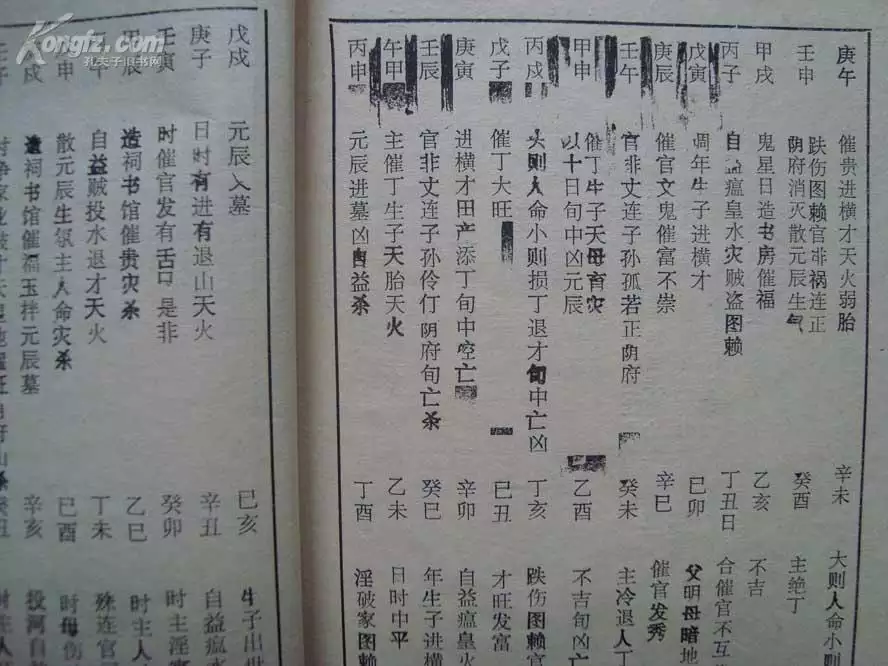 庚午 催贵进横才天火弱胎 辛未 大则人命小则
壬申 跌伤图赖官非祸连正阴府消灭散元辰生气 癸酉 主绝丁
甲戌 鬼星日造书房催福 乙亥 不吉
丙子 自益瘟皇水灾贼盗图赖 丁丑日 合催官不互
戊寅 周年生子进横才 己卯 父明母暗地
庚辰 催官文鬼催富不崇 辛巳 催官发秀
壬午 官非丈连子孙孤若正阴府 癸未 主冷退人丁
甲申 催丁生子天母育灾以十日旬中凶元辰 乙酉 不吉旬凶
丙戌 大则人命小则损丁退才旬中亡凶 丁亥 跌伤图赖官
戊子 催丁大旺 巳丑 才旺发富
庚寅 进横才田产添丁旬中空亡 辛卯 自益瘟皇火
壬辰 官非丈连子孙伶仃阴府旬亡杀 癸巳 年生子进横
午甲 主催丁生子天胎天火 乙未 日时中平
丙申 元辰进墓凶自益杀 丁酉 淫破家图赖
戊戌 元辰入墓 巳亥 生子出世
庚子 日时有进有退山天火 辛丑 自益瘟水
壬寅 时催官发有舌口是非 癸卯 时主淫
甲辰 造祠书馆催贵灾杀 乙巳 时主人
午 自益贼投水退才天火 丁未 殊连官
申 散元辰生氛主人命灾杀 巳酉 时母伤
戌 造祠书馆催福玉拌元辰墓 辛亥 投河自
子 癸丑 时主人
Kongfz.com
孔夫子旧书网